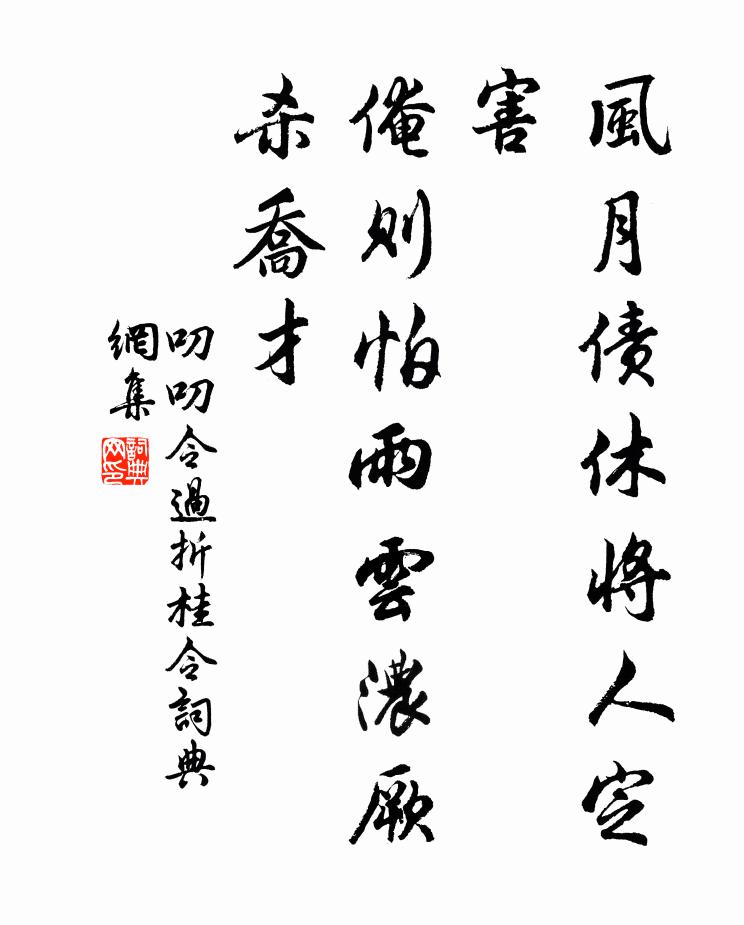 風月債休將人定
害
俺則怕雨雲濃厥
杀喬才
叨叨令過折桂令詞典
網集
詞典
网印